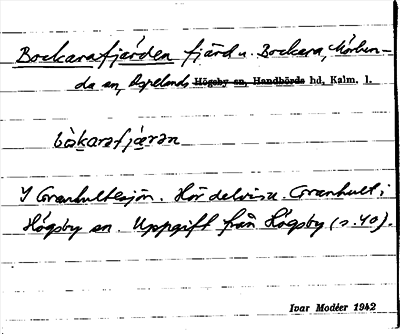 Bockarafjärden fjärd u. Bockara, Mörlun-
da sn, Aspelands Högsby sn, Handbörds hd, Kalm. l.
bò̀karafjæ̀rən
I Granhultesjön. Hör delvis u. Granhult i
Högsby sn. Uppgift från Högsby (s. 40).
Ivar Modéer 1942